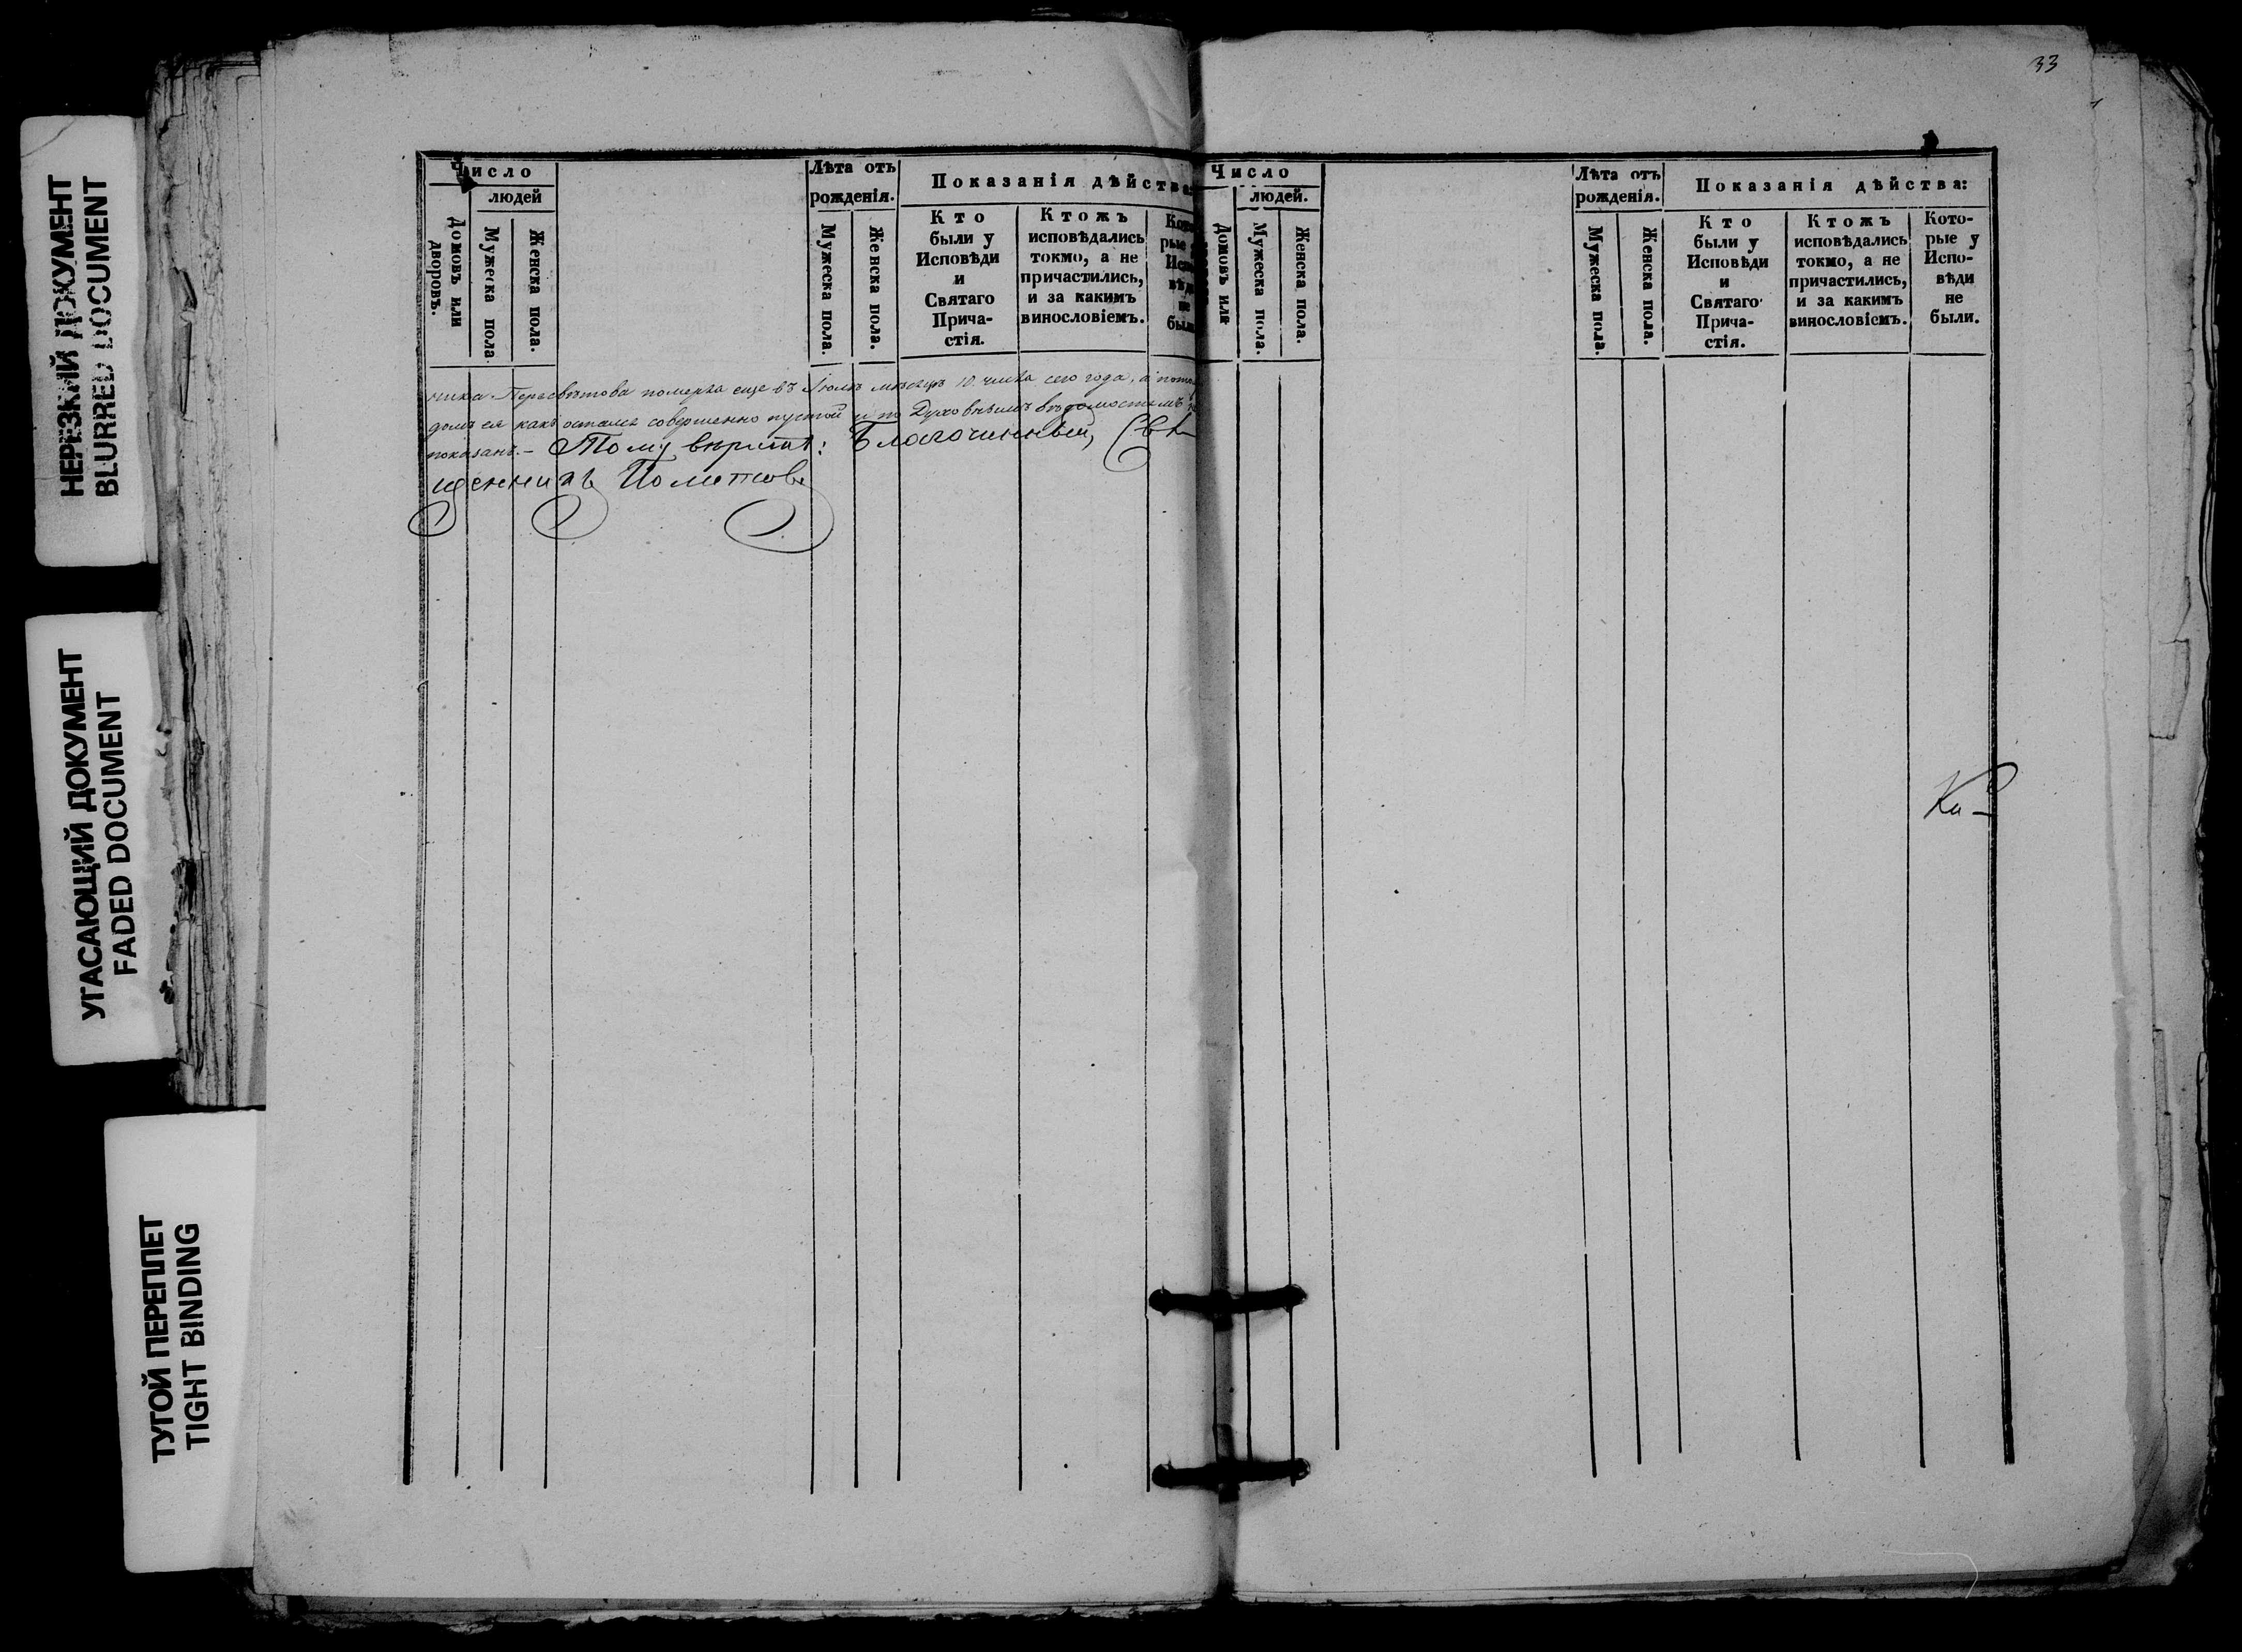 НЕРЕЗКИЙ ДОКУМЕНТ
BLURRED DOCUMENT
УГАСАЮЩИЙ ДОКУМЕНТ
FADED DOCUMENT
ТУГОЙ ПЕРЕПЛЕТ
TIGHT BINDING
Число
людей
Домовъ или дворовъ.
Мужеска пола.
Женска пола.
Лѣта отъ
рожденія.
Мужеска пола.
Женска пола.
Показанія дѣйства
Кто
были у
Исповѣди
и
Святаго
Прича-
стія.
Ктожъ
исповѣдались
токмо, а не
причастились,
и за какимъ
винословіемъ.
чика Пересвѣтова померла еще въ Іюлѣ мѣсяцѣ 10. числа сего года, а
домъ ея какъ остался совершенно пустой и по Духовнымъ вѣдомостямъ
показанъ. – Тому вѣритъ: Благочинный, Свя-
щенникъ
33
Число
людей.
Домовъ или
Мужеска пола.
Женска пола.
Лѣта отъ
рожденія.
Мужеска пола.
Женска пола.
Показанія дѣйства:
Кто
были у
Исповѣди
и
Святаго
Прича-
стія.
Ктожъ
исповѣдались
токмо, а не
причастились,
и за какимъ
винословіемъ.
Кото-
рые у
Испо-
вѣди
не
были.
Ка-